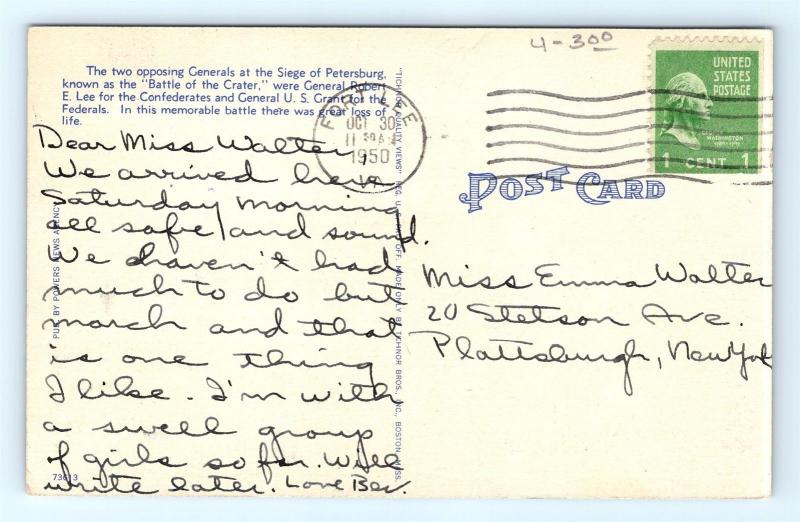 4-300
The two opposing Generals at the Siege of Petersburg,
known as the "Battle of the Crater," were General Robert
E. Lee for the Confederates and General U. S. Grant for the
Federals. In this memorable battle there was great loss of
life.
Dear Miss Walter,
We arrived here
Saturday morning
all safe and sound.
We haven't had
much to do but
march and that
is one thing
I like. I'm with
a swell group
of girls so far. Will
write later. Love Bev.
73613
PUB. BY POWERS NEWS AGENCY
"TICHNOR QUALITY VIEWS" REG. U. S. PAT. OFF. MADE ONLY BY TICHNOR BROS., INC., BOSTON, MASS.
FORT LEE
OCT 30
11 30 AM
1950
VA
UNITED
STATES
POSTAGE
WASHINGTON
1 CENT 1
POST CARD
Miss Emma Walter
20 Stetson Ave.
Plattsburgh, New York